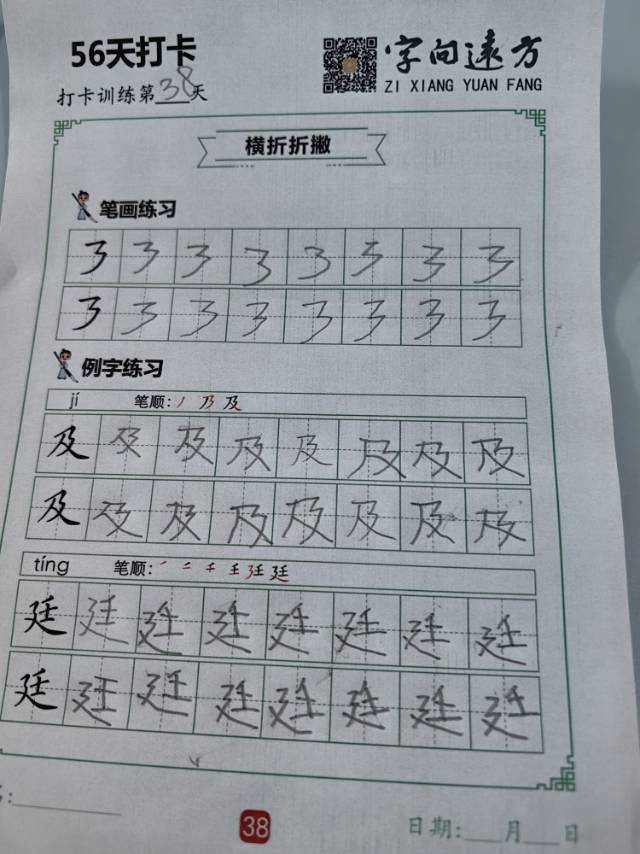 56天打卡
字向远方
打卡训练第38天
ZI XIANG YUAN FANG
横折折撇
笔画练习
例字练习
jí 笔顺: 丿 乃 及
及 及 及 及 及 及 及 及
及 及 及 及 及 及 及 及
tíng 笔顺:
廷 廷 廷 廷 廷 廷 廷 廷
廷 廷 廷 廷 廷 廷 廷 廷
38
日期:___月___日